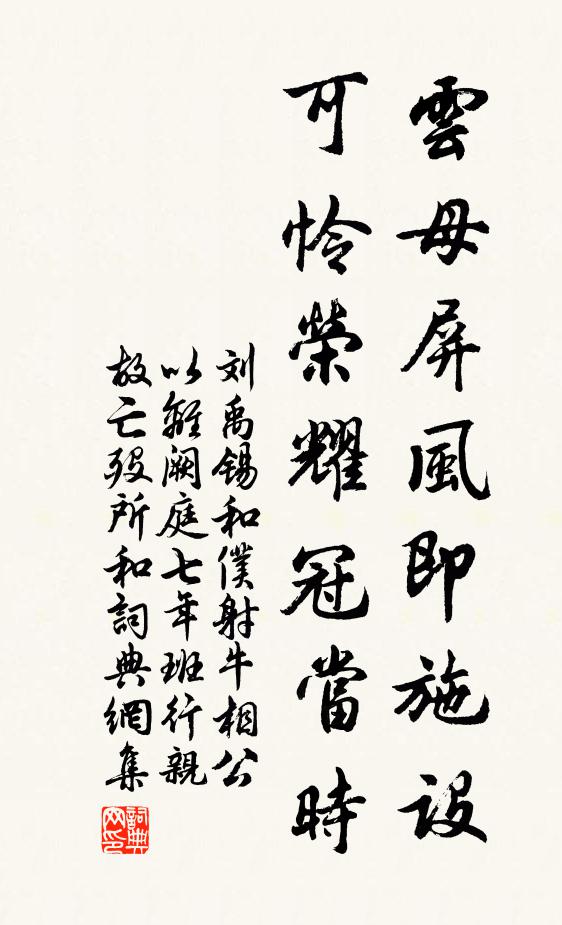 雲母屏風即施設
可怜榮耀冠當時
刘禹锡和僕射牛相公
以離阙庭七年班行親
故亡殁所和詞典網集
詞典网印